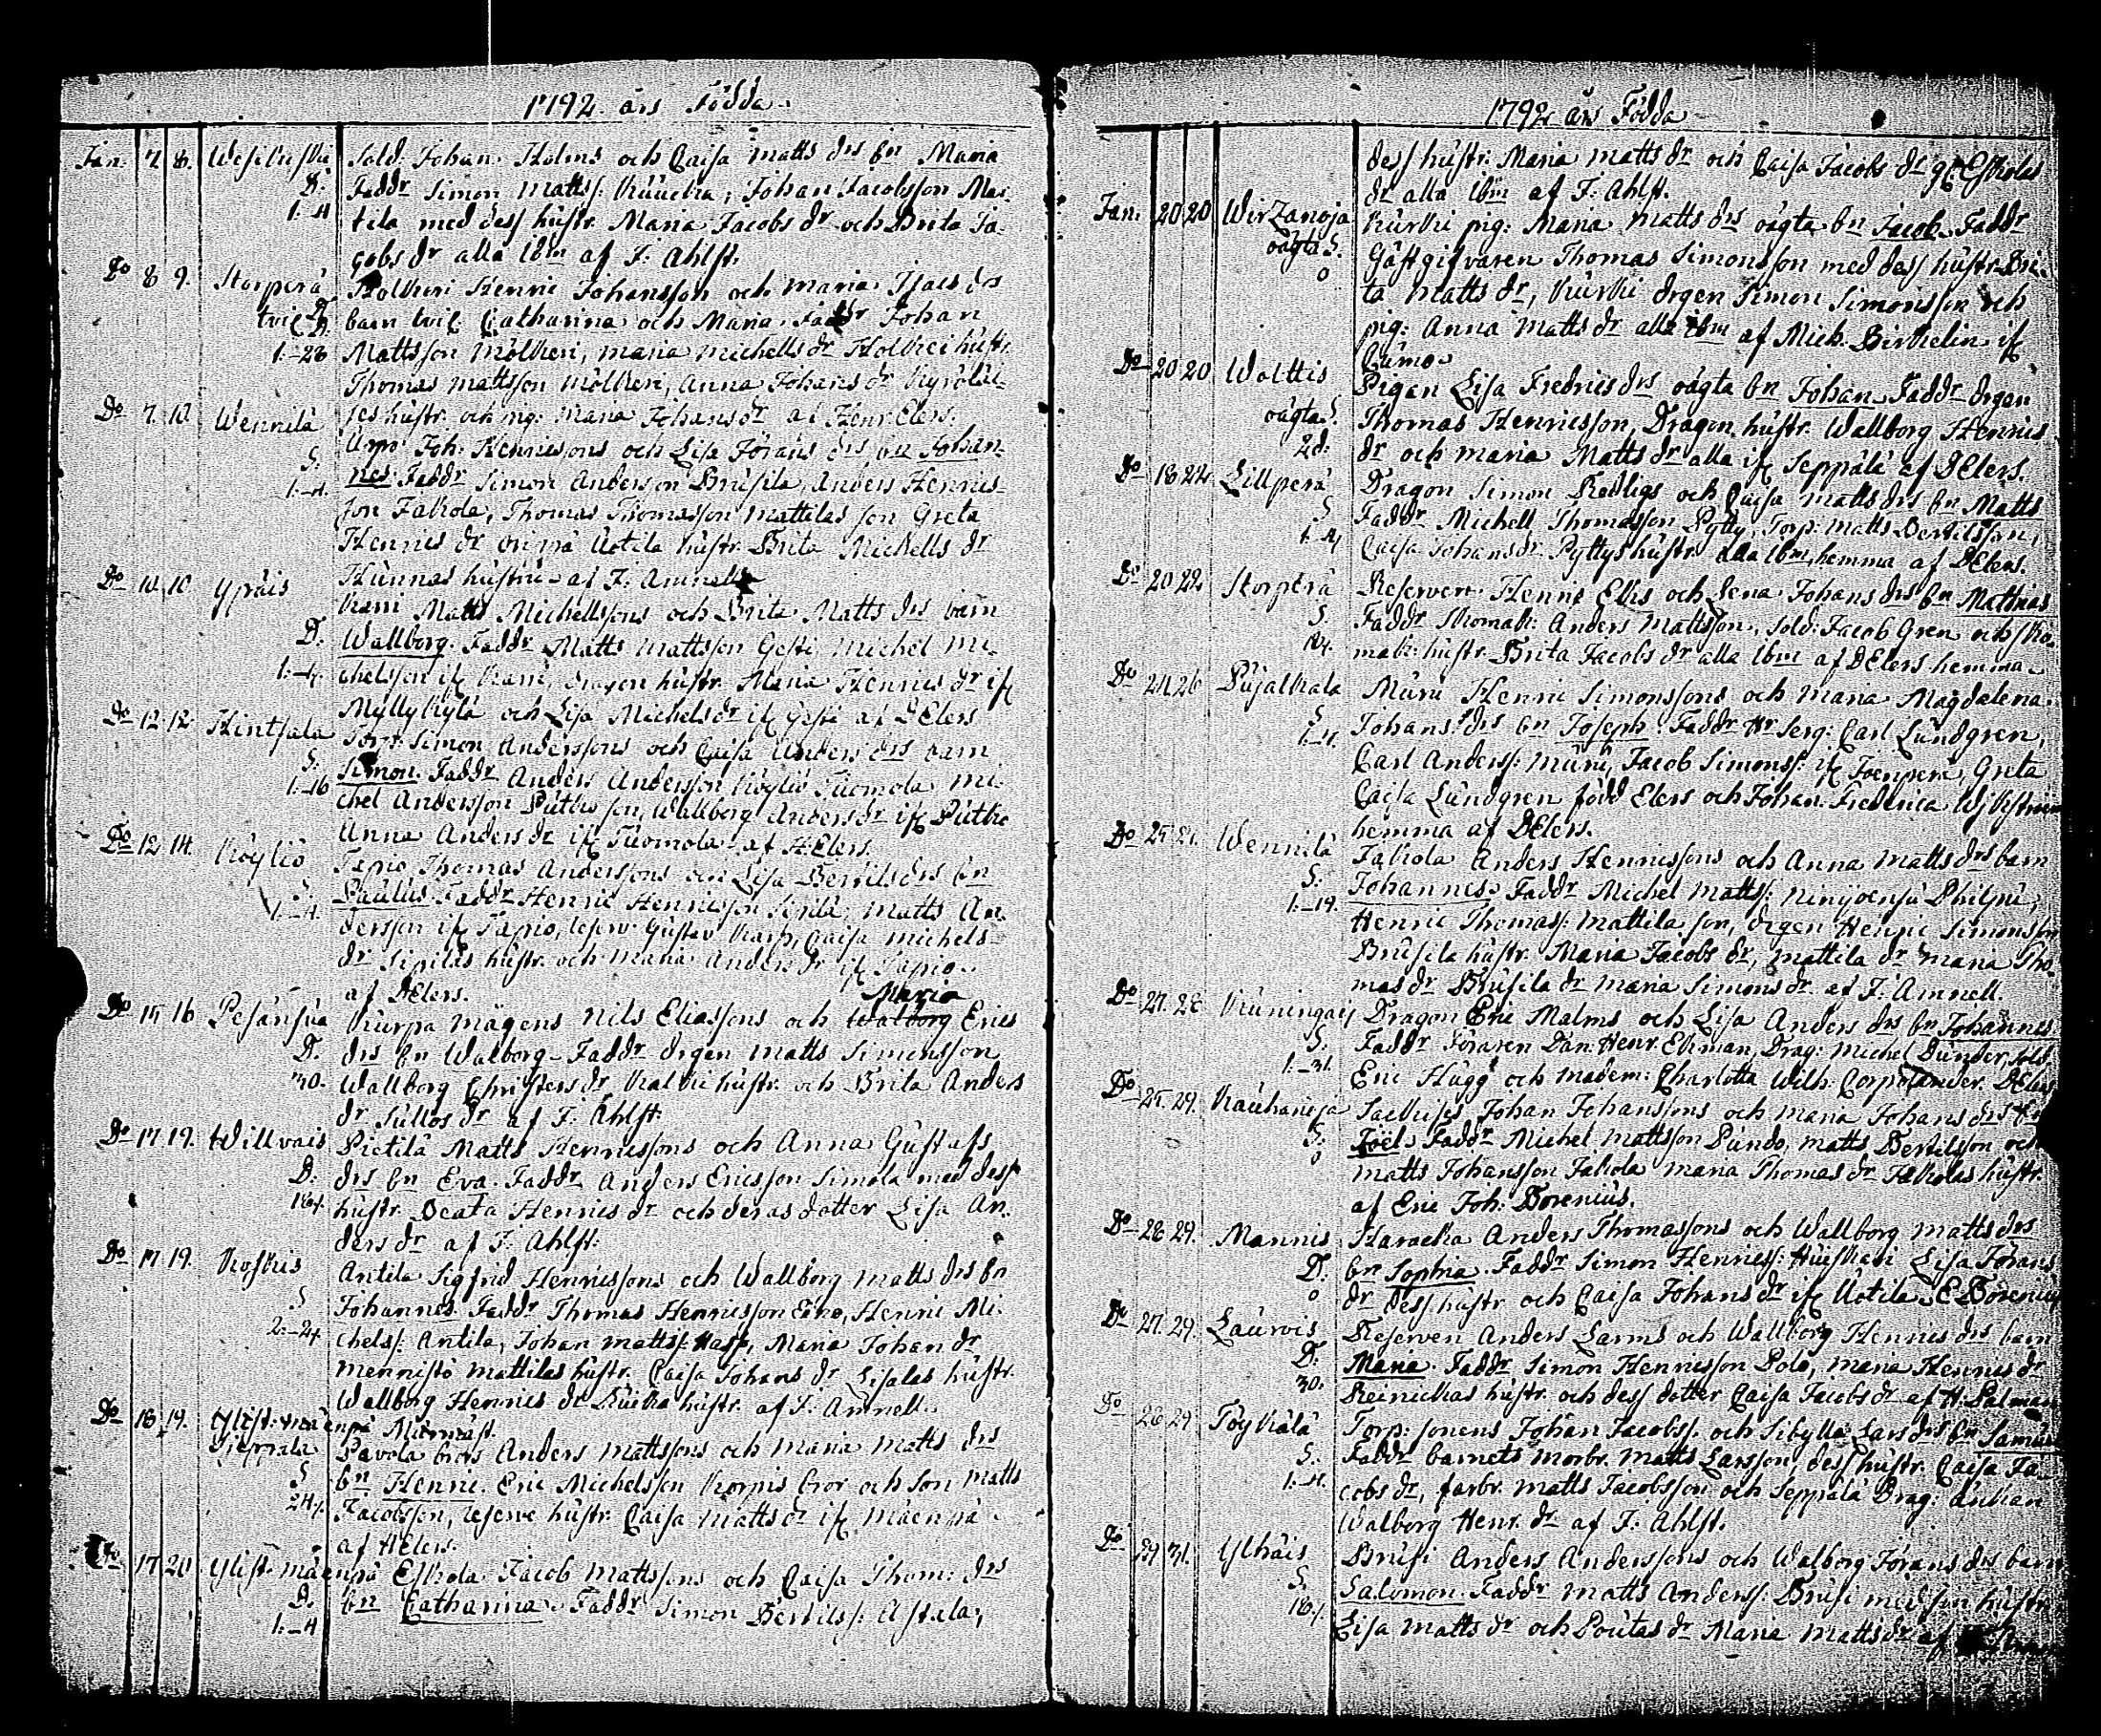 1792 års Födda
Jan. 7 8. Sold: Johan Holms och Caisa Matts drs bn Maria
D. Faddr Simon Mattss: Johan Jacobsson Mar-
1.-4 tila med dess hustr. Maria Jacobs dr och Brita Ja-
cobs dr alla ibm af J: Ahlst.
Do 8 9. Storperä Holkeri Henric Johansson och Maria drs
tvil. D. D. barn tvil. Catharina och Maria. Faddr Johan
1.-28 Mattsson Mölkeri, Maria Michells dr Holkeri hustr.
Thomas Mattsson Mölkeri, Anna Johans dr
hustr. och pig: Maria Johans dr af Henr: Elers.
Do 7. 10. Wennilä Joh: Henricssons och Lisa Jörans drs bn Johan-
S. nes. Faddr Simon Andersson Brusila, Anders Henrics-
1.-4. son Jakola, Thomas Thomasson Mattilas son Greta
Henrics dr Uotila hustr. Brita Michells dr
Hunnas hustru af J: Amnell
Do 10 10 Ypäis Karri Matts Michellssons och Brita Matts drs barn
D. Wallborg. Faddr Matts Mattsson Gesti Michel Mi-
1.-4. chelsson if Karri, dragon hustr. Maria Henrics dr if
Myllykylä och Lisa Michels dr if Gesti af D Elers
Do 12 12 Hintsala Torp: Simon Anderssons och Caisa Anders drs barn
S. Simon. Faddr Anders Andersson Köyliö Tuomola Mi-
1.-16 chel Andersson Putkis son, Wallborg Anders dr if Putko
Anna Anders dr if Tuomola af H: Elers.
Do 12 14. Köyliö Tapio Thomas Anderssons och Lisa Bertils drs bn
S. Paulus Faddr Henric Henricsson Sipilä, Matts An-
1.-4. dersson if Tapio, reserv: Gustav Karp, Caisa Michels
dr Sipiläs hustr. och Maria Anders dr if Tapio
af D Elers.
Maria
Do 15 16 Pesänsuo Kurpa mågens Nils Eliassons och Walborg Erics
D. drs bn Walborg Faddr drgen Matts Simonsson
30. Wallborg Christers dr, Kalkis hustr. och Brita Anders
dr Sullos dr af J: Ahlst.
Do 17 19. Willvais Pietilä Matts Henricssons och Anna Gustafs
D. drs bn Eva. Faddr Anders Ericsson Simola med dess
hustr. Beata Henrics dr och deras dotter Lisa An-
ders dr af J: Ahlst.
Do 17 19. Koskis Antila Sigfrid Henricssons och Wallborg Matts drs bn
S. Johannes. Faddr Thomas Henricsson Eiko, Henric Mi-
2.-24. chelss: Antila, Johan Mattss: Maria Johan dr
Mennistö Mattilas hustr. Caisa Johans dr Lisalas hustr.
Wallborg Henrics dr hustr. af J: Amnell.
Do 18 19. Ylist: mäenpä
Sjeppala Pavola brors Anders Mattssons och Maria Matts drs
S. bn Henric. Eric Michelsson Korpis bror och son Matts
24. Jacobsson, reserve hustr. Caisa Matts dr if Mäenpä
af H Elers.
Do 17 20 Ylist: mäenpä Eskola Jacob Mattssons och Caisa Thom: drs
D. bn Catharina. Faddr Simon Bertilss:
1.-4
1792 års Födda
dess hustr: Maria Matts dr och Caisa Jacobs dr Eskolas
dr alla ibm af J: Ahlst.
Jan. 20 20 Wirzanoja Kurki pig: Maria Matts drs oägta bn Jacob. Faddr
oägta S. Gästgifvaren Thomas Simonsson med dess hustr. Bri-
0 ta Matts dr, Kurki drgen Simon Simonsson och
pig: Anna Matts dr alla ibm af Mich. Birkelin if
Cumo
Do 20 20 Walttis Pigan Lisa Fredrics drs oägta bn Johan. Faddr drgen
oägta S. Thomas Henricsson, Dragon hustr. Wallborg Henrics
2d: dr och Maria Matts dr alla if Seppälä af D Elers.
Do 18 22 Lillperä Dragon Simon Redligs och Caisa Matts drs bn Matts
S. Faddr Michell Thomasson Pytty, Torp: Matts Bertilsson,
1.-4 Caisa Johans dr. Pyttys hustr. alla ibm hemma af D Elers.
Do 20 22 Storperä Reserven Henric Elks och Lena Johans drs bn Matthias
S. Faddr Skomak: Anders Mattsson, Sold: Jacob Gren och Sko-
mak: hustr. Brita Jacobs dr alla ibm af D Elers hemma
Do 24 26 Pujalkala Muru Henric Simonssons och Maria Magdalena
S. Johans drs bn Joseph. Faddr Hr Serg: Carl Lundgren,
1.-4. Carl Anderss: Muru, Jacob Simonss: if Joenperä, Greta
Caisa Lundgren född Elers och Johan: Frederica
hemma af D Elers.
Do 25 Wennilä Jakola Anders Henricssons och Anna Matts drs barn
S. Johannes. Faddr Michel Mattss: Ninijoensu
1.-14. Henric Thomass: Mattila son, drgen Henric Simonsson
Brusila hustr. Maria Jacobs dr, Mattila dr Maria Tho-
mas dr Brusila dr Maria Simons dr. af J: Amnell.
Do 27. 28 Kuningais Dragon Eric Malms och Lisa Anders drs bn Johannes
S. Faddr Föraren Dan: Henr: Ekman, Drag: Michel Dunder, sold:
1.-31. Eric Hugg och madem: Charlotta Wilh: Corpolander D Elers
Do 25. 29. Kauhanoja Johan Johanssons och Maria Johans drs bn
S. Joel. Faddr Michel Mattsson Pundo, Matts Bertilsson och
0 Matts Johansson Jakola Maria Thomas dr Jakolas hustr.
af Eric Joh: Borenius.
Do 28 29. Mannis Haracka Anders Thomassons och Wallborg Matts drs
D. bn Sophia. Faddr Simon Henricss: Huiskari Lisa Jörans
0 dr dess hustr och Caisa Johans dr if Uotila. E Borenius
Do 27. 29. Lauvois Reserven Anders Larms och Wallborg Henrics drs barn
D. Maria. Faddr Simon Henricsson Polo, Maria Henrics dr
30. Reinickas hustr. och dess dotter Caisa Jacobs dr af H: Palman
Do 28 29 Töykälä Torp: sonens Johan Jacobss: och Sibylla Lars drs bn
S. Faddr barnets morbr. Matts Larsson, dess hustr. Caisa Ja-
1.-4. cobs dr, farbr. Matts Jacobsson och Seppälä Drag: änkan
Walborg Henr: dr af J: Ahlst.
Do 31. Ylhäis Brusi Anders Anderssons och Walborg Jörans drs barn
S. Salomon. Faddr Matts Anderss: Brusi med sin hustr.
Lisa Matts dr och Poutas dr Maria Matts dr af